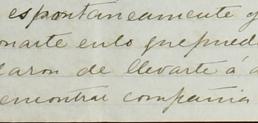 espontaneamente y
onarte en lo que pued
laron de llevarte á a
encontrar compañia